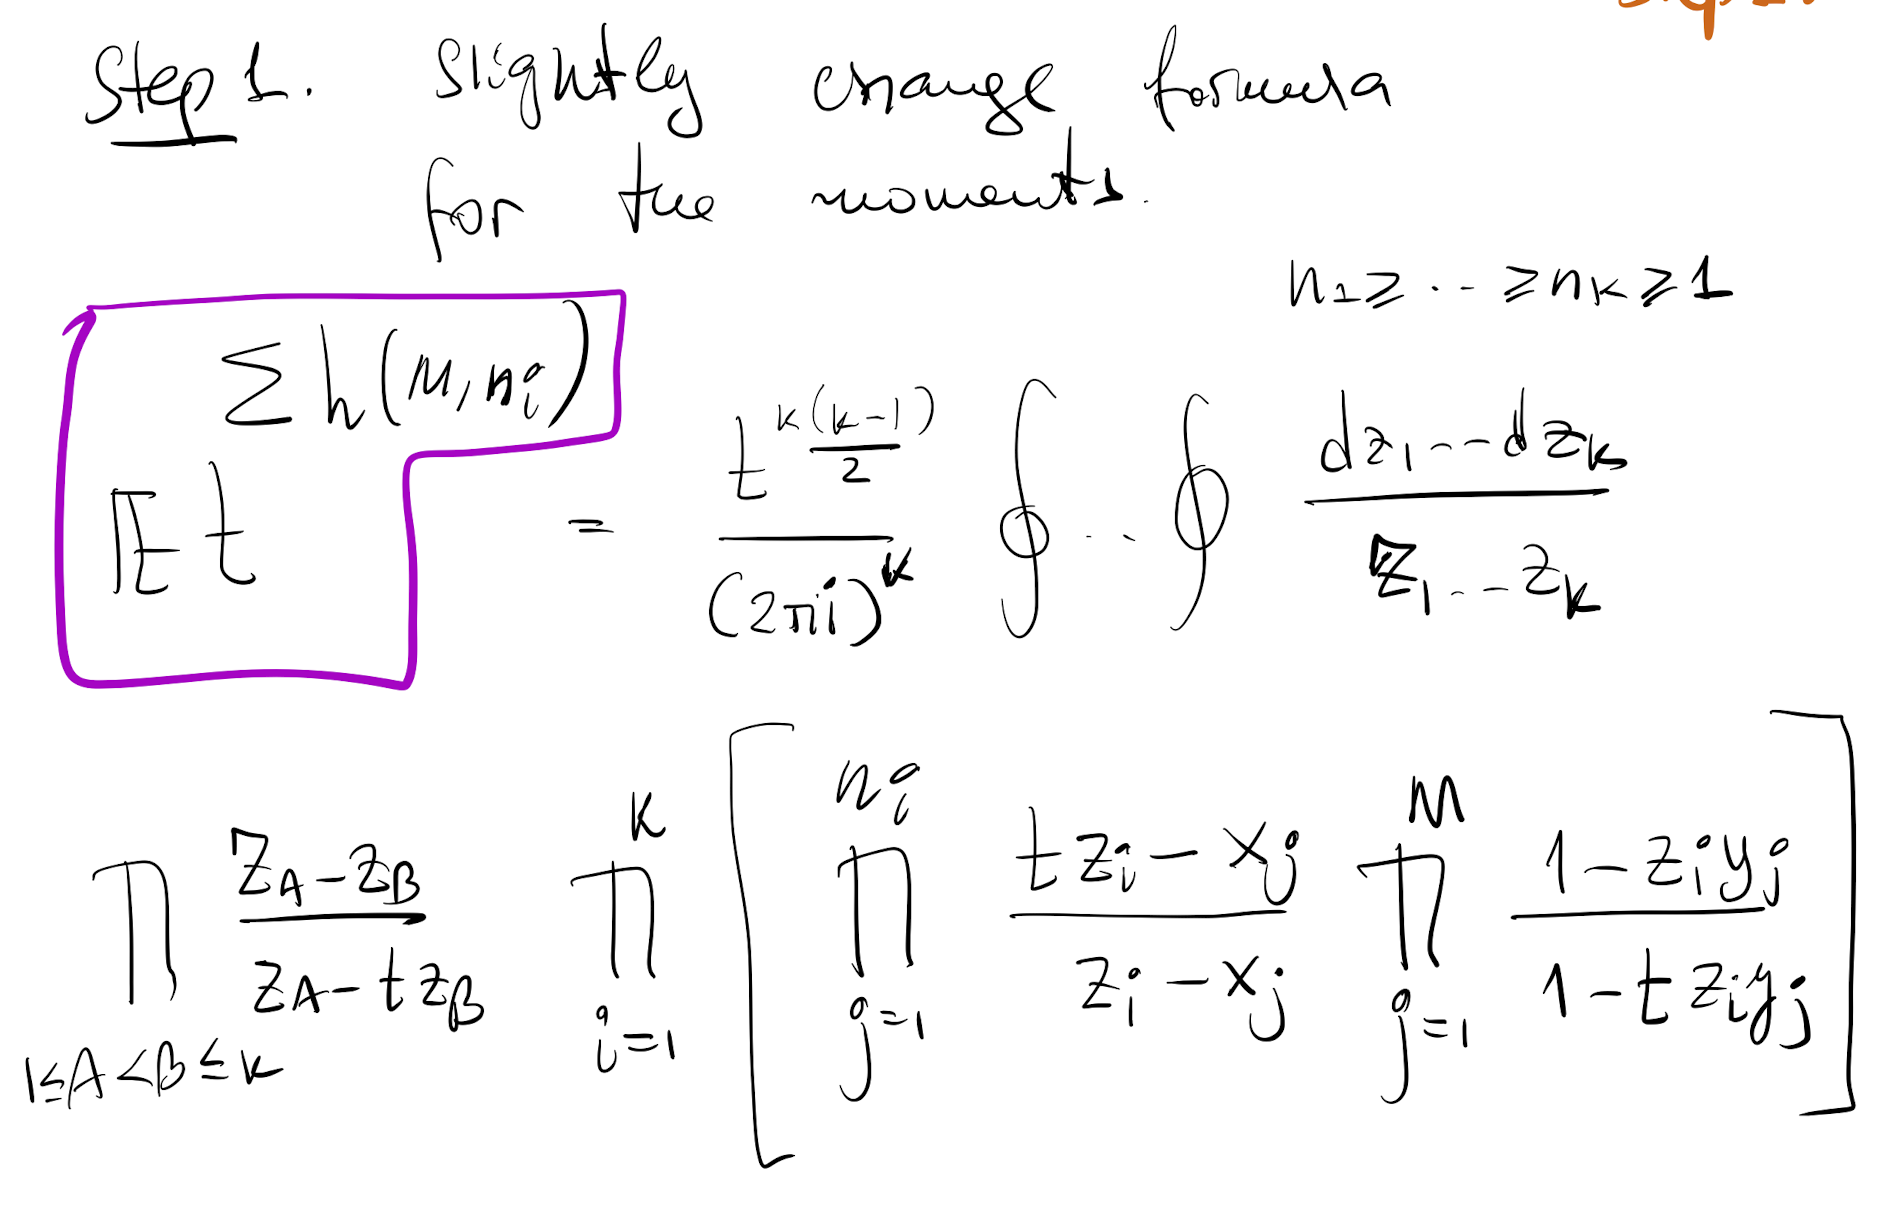 Step 1. Slightly change formula
for the moments.
n_1 ≥ ... ≥ n_K ≥ 1
E t^{Σ h(M, n_i)} = \frac{t^{\frac{K(K-1)}{2}}}{(2πi)^K} ∮ ... ∮ \frac{dz_1 ... dz_K}{z_1 ... z_K}
∏_{1≤A<B≤K} \frac{z_A - z_B}{z_A - t z_B} ∏_{i=1}^{K} [ ∏_{j=1}^{n_i} \frac{t z_i - x_j}{z_i - x_j} ∏_{j=1}^{M} \frac{1 - z_i y_j}{1 - t z_i y_j} ]